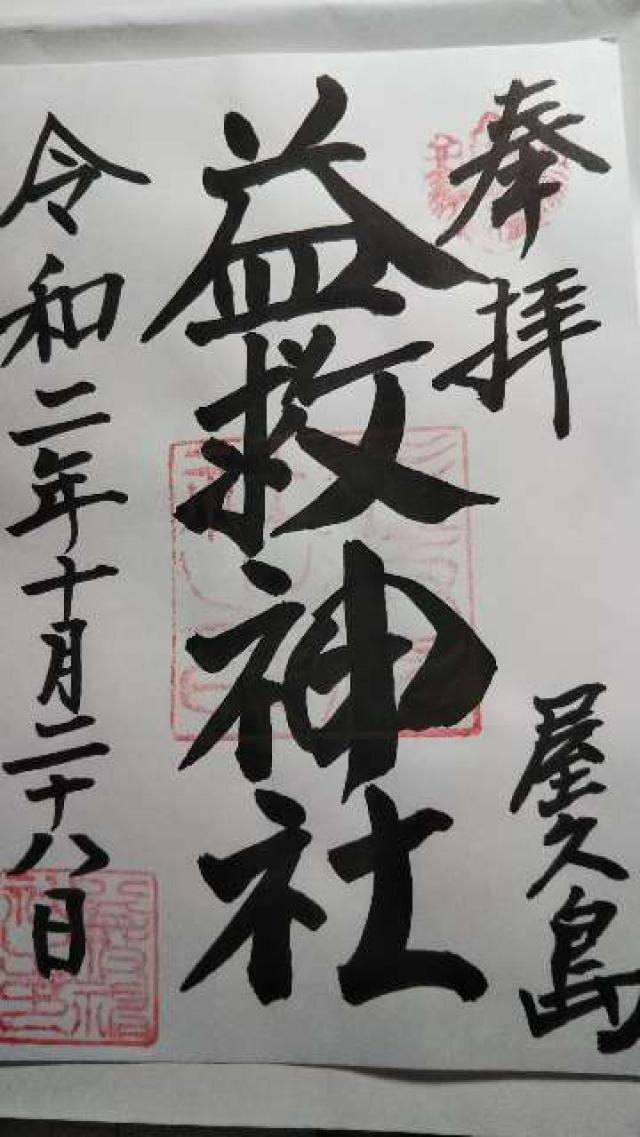 奉拝
屋久島
益救神社
令和二年十月二十八日